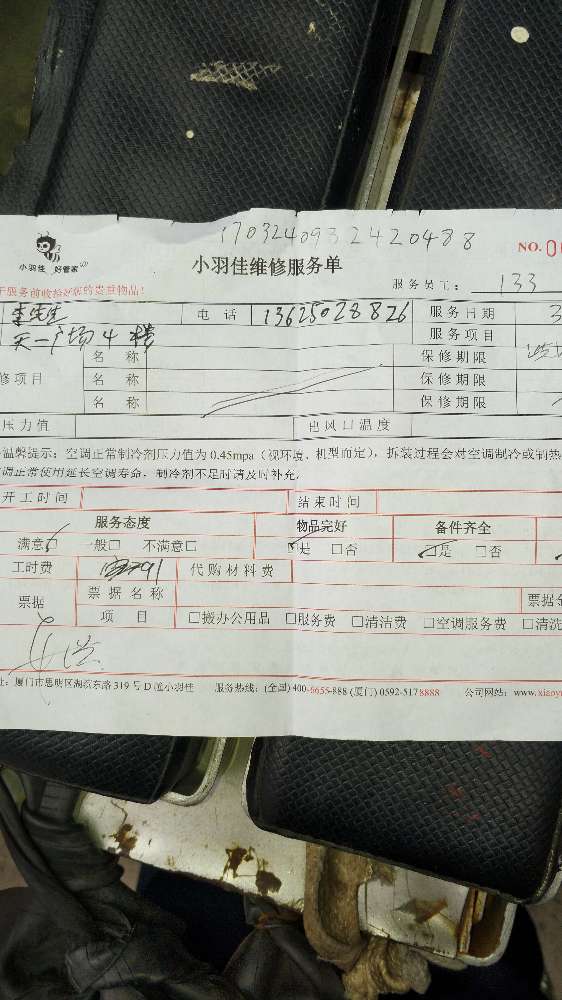 1703240932420488
小羽佳 好管家
小羽佳维修服务单
NO.0
服务员工: 133
服务前收拾好您的贵重物品!
李先生 电话 13625028826 服务日期 3
天一广场4楼 服务项目
修项目 名称 保修期限
名称 保修期限
名称 保修期限
压力值 出风口温度
温馨提示:空调正常制冷剂压力值为0.45mpa(视环境、机型而定),拆装过程会对空调制冷或制热
调正常使用延长空调寿命,制冷剂不足时请及时补充。
开工时间 结束时间
服务态度 物品完好 备件齐全
满意□ 一般□ 不满意□ □是 □否 □是 □否
工时费 代购材料费
票据 票据名称 票据金
项目 □搬办公用品 □服务费 □清洁费 □空调服务费 □清洗
址:厦门市思明区湖滨东路319号D 小羽佳 服务热线:(全国)400-6655-888 (厦门)0592-5178888 公司网站:www.xiaoy